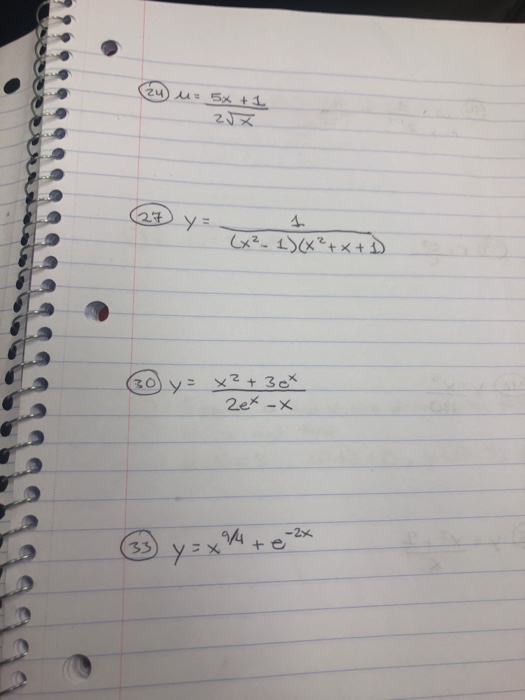 24 u = 5x + 1
2√x
27 y = 1
(x² - 1)(x² + x + 1)
30 y = x² + 3eˣ
2eˣ - x
33 y = x^9/4 + e^-2x